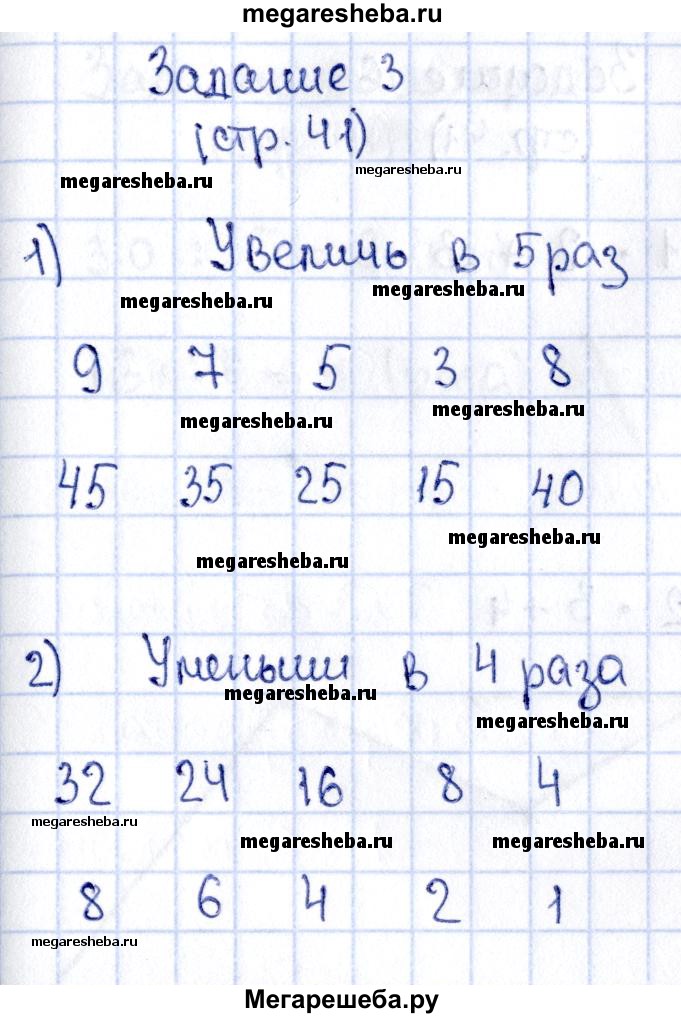 megaresheba.ru
Задание 3
(стр. 41)
megaresheba.ru
megaresheba.ru
1) Увеличь в 5 раз
megaresheba.ru
megaresheba.ru
9 7 5 3 8
megaresheba.ru
megaresheba.ru
45 35 25 15 40
megaresheba.ru
megaresheba.ru
2) Уменьши в 4 раза
megaresheba.ru
megaresheba.ru
32 24 16 8 4
megaresheba.ru
megaresheba.ru
megaresheba.ru
8 6 4 2 1
megaresheba.ru
Мегарешеба.ру